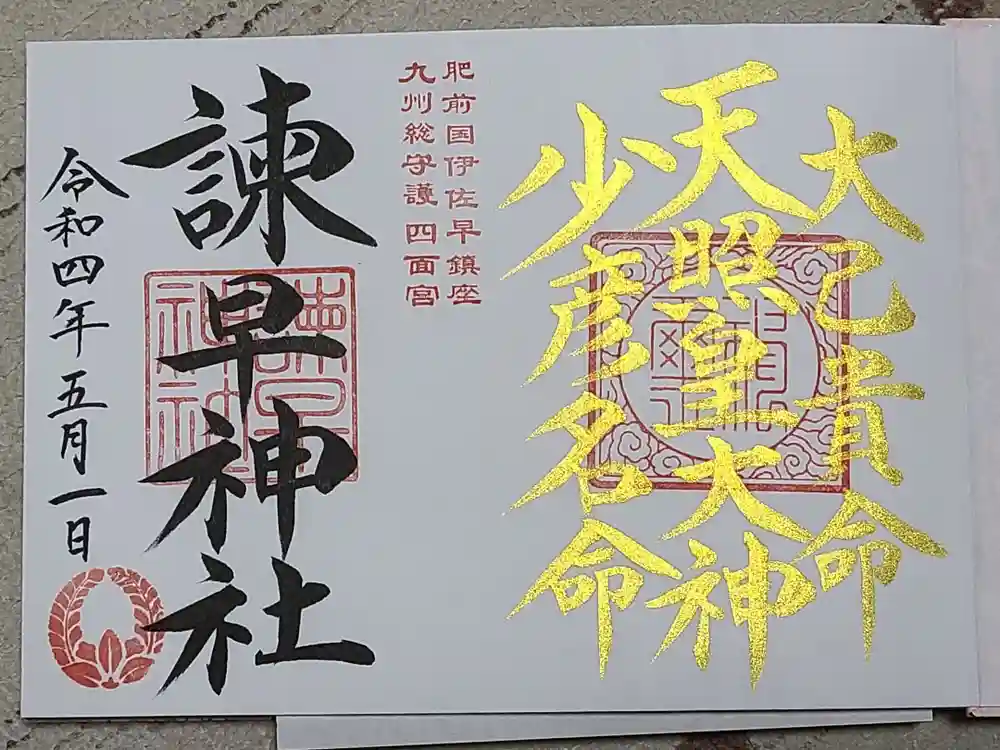 大己貴命
天照皇大神
少彦名命
肥前国伊佐早鎮座
九州総守護四面宮
諫早神社
令和四年五月一日